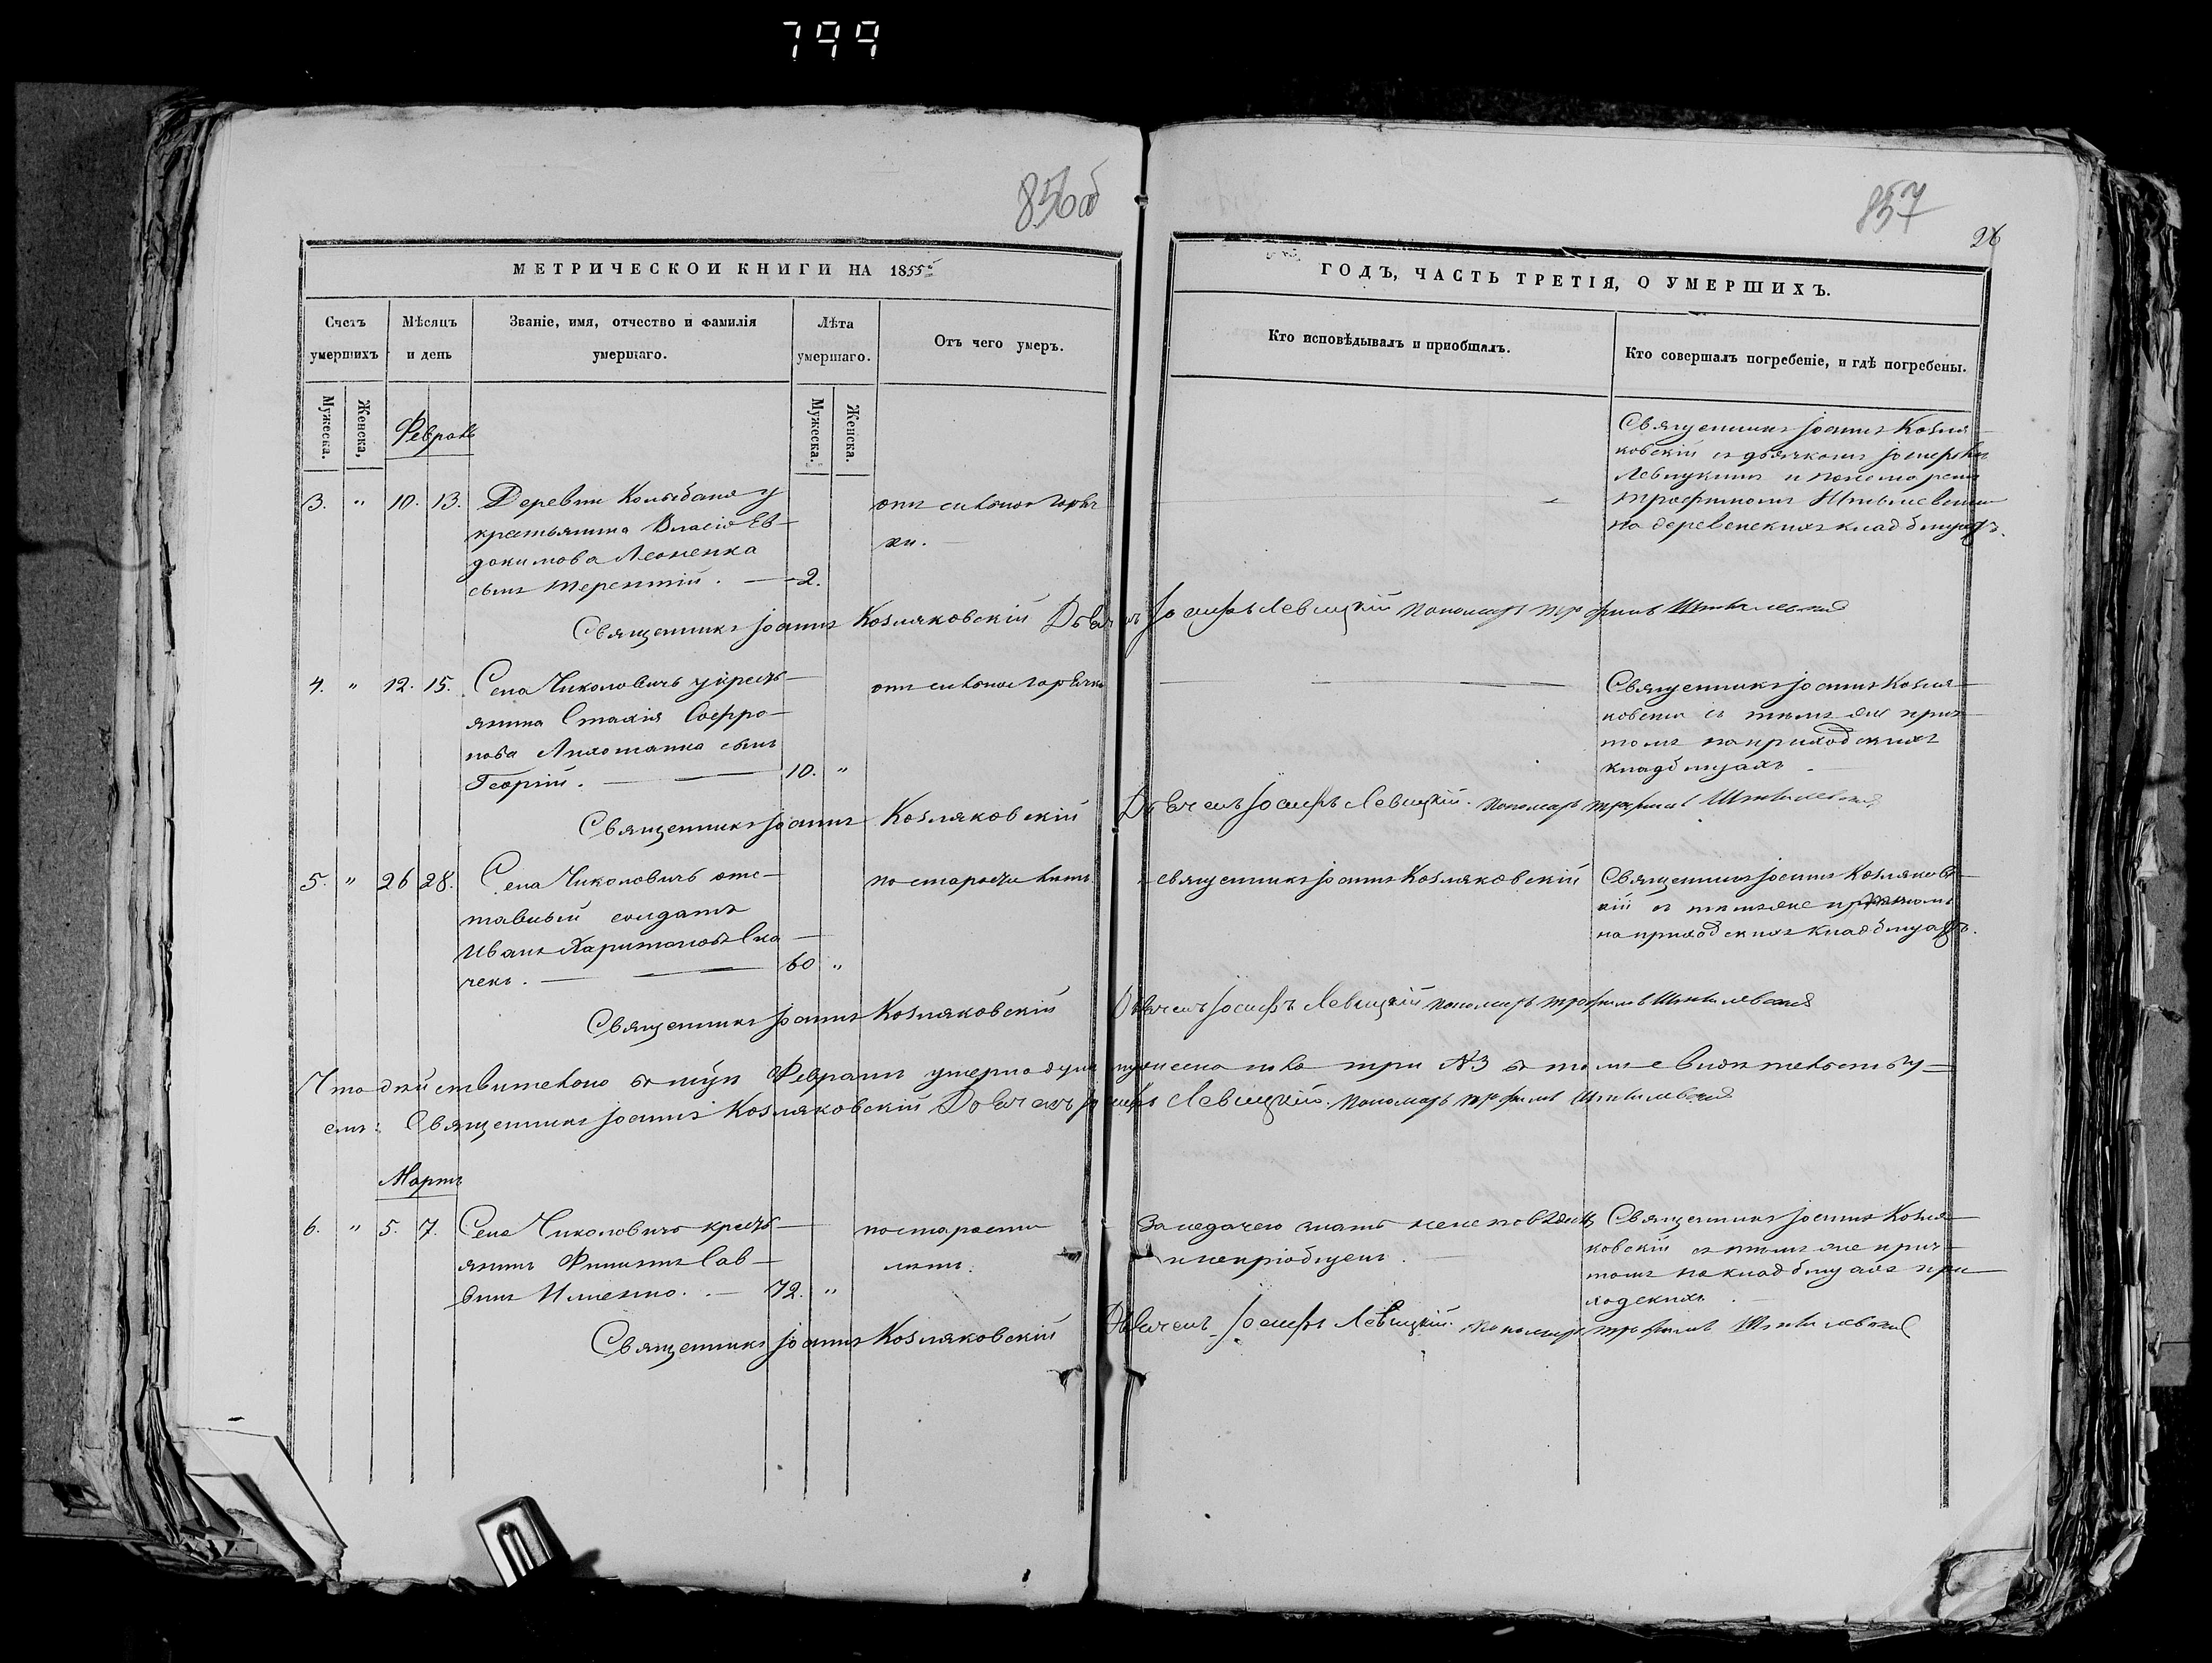 799
856об
857
26
МЕТРИЧЕСКОЙ КНИГИ НА 1855й
ГОДЪ, ЧАСТЬ ТРЕТІЯ, О УМЕРШИХЪ.
Счетъ умершихъ
Мѣсяцъ и день
Званіе, имя, отчество и фамилія умершаго.
Лѣта умершаго.
Отъ чего умеръ.
Кто исповѣдывалъ и пріобщалъ.
Кто совершалъ погребеніе, и гдѣ погребены.
Мужеска.
Женска,
Мужеска.
Женска.
Февраль
3. " 10. 13. Деревни Колыбани у
крестьянина Власія Ев-
докимова Леоненка
сынъ Терентій. — 2.
отъ сильной горяч
ки.
Священникъ Іоаннъ Козля-
ковскій съ дьячкомъ Іосифомъ
Левицкимъ и пономаремъ
Трофимомъ
на деревенскихъ кладбищахъ.
Священникъ Іоаннъ Козляковскій Дьячекъ Іосифъ Левицкій Пономарь Трофимъ
4. " 12. 15. Села Чиколовичь у кресть-
янина Софро-
нова сынъ
Георгій. — 10. "
отъ сильной горячки
Священникъ Іоаннъ Козля-
ковскій съ тѣмъ же прич-
томъ на приходскихъ
кладбищахъ
Священникъ Іоаннъ Козляковскій Дьячекъ Іосифъ Левицкій. Пономарь Трофимъ
5. " 26 28. Села Чиколовичь отс-
тавный солдатъ
Иванъ Харитоновъ Ска-
чекъ. — 60 "
по старости лѣтъ
Священникъ Іоаннъ Козляковскій
Священникъ Іоаннъ Козляковс-
кій съ тѣмъ же причтомъ
на приходскихъ кладбищахъ.
Священникъ Іоаннъ Козляковскій Дьячекъ Іосифъ Левицкій Пономарь Трофимъ
Что дѣйствительно въ Февралѣ умерло душъ мужеска пола три №3 въ томъ свидѣтельству-
емъ: Священникъ Іоаннъ Козляковскій Дьячекъ Іосифъ Левицкій. Пономарь Трофимъ
Мартъ
6. " 5. 7. Села Чиколовичь кресть-
янинъ Филиппъ Сав-
винъ — 72. "
по старости
лѣтъ.
За недачею знать не исповѣданъ
и непріобщенъ.
Священникъ Іоаннъ Козля-
ковскій съ тѣмъ же прич-
томъ на кладбищахъ при-
ходскихъ
Священникъ Іоаннъ Козляковскій Дьячекъ Іосифъ Левицкій. Пономарь Трофимъ